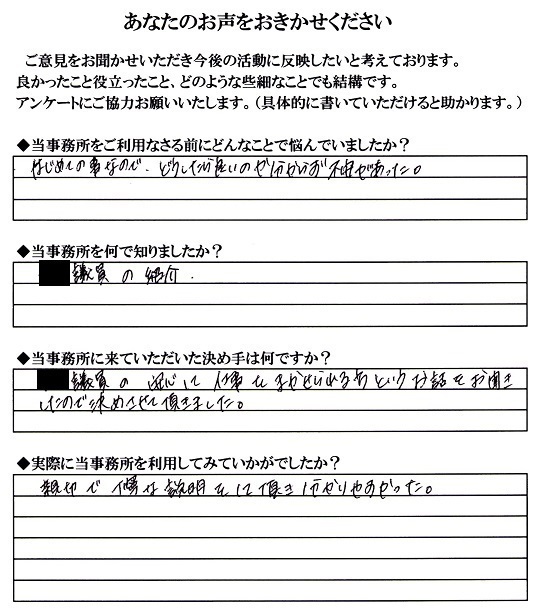 あなたのお声をおきかせください
ご意見をお聞かせいただき今後の活動に反映したいと考えております。
良かったこと役立ったこと、どのような些細なことでも結構です。
アンケートにご協力お願いいたします。（具体的に書いていただけると助かります。）
◆当事務所をご利用なさる前にどんなことで悩んでいましたか？
はじめての事なので、どうしたら良いのか分からず不安があった。
◆当事務所を何で知りましたか？
議員の紹介.
◆当事務所に来ていただいた決め手は何ですか？
議員の 仕事をまかせられる方というお話をお聞き
したので決めさせて頂きました。
◆実際に当事務所を利用してみていかがでしたか？
親切で 説明をして頂き分かりやすかった。